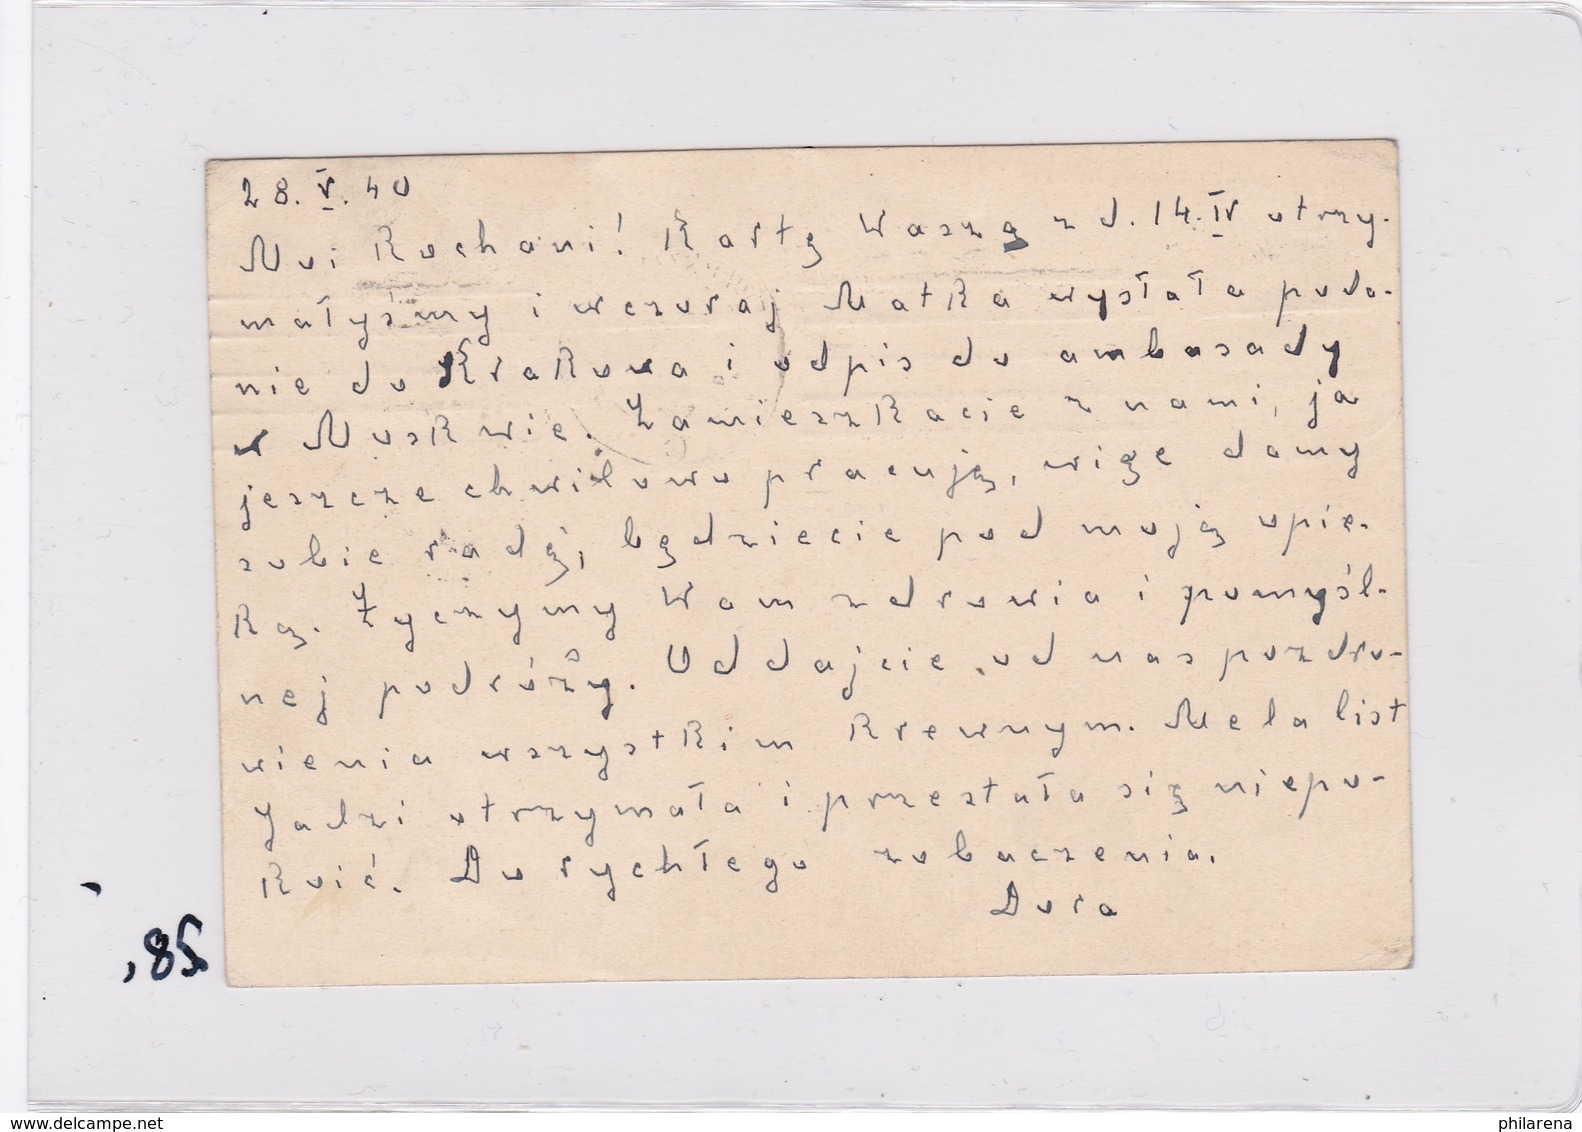 28.V.40
Moi Kochani! Kartę Waszą z d. 14.IV otrzy-
małyśmy i wczoraj Matka wysłała poda-
nie do Krakowa i odpis do ambasady
w Moskwie. Zamieszkacie z nami, ja
jeszcze chwilowo pracuję, więc damy
sobie radę, będziecie pod moją opie-
ką. Życzymy Wam zdrowia i pomyśl-
nej podróży. Oddajcie od nas pozdro-
wienia wszystkim Krewnym. Mela list
Jadzi otrzymała i przestała się niepo-
koić. Do rychłego zobaczenia.
Dora
,85
www.delcampe.net
philarena